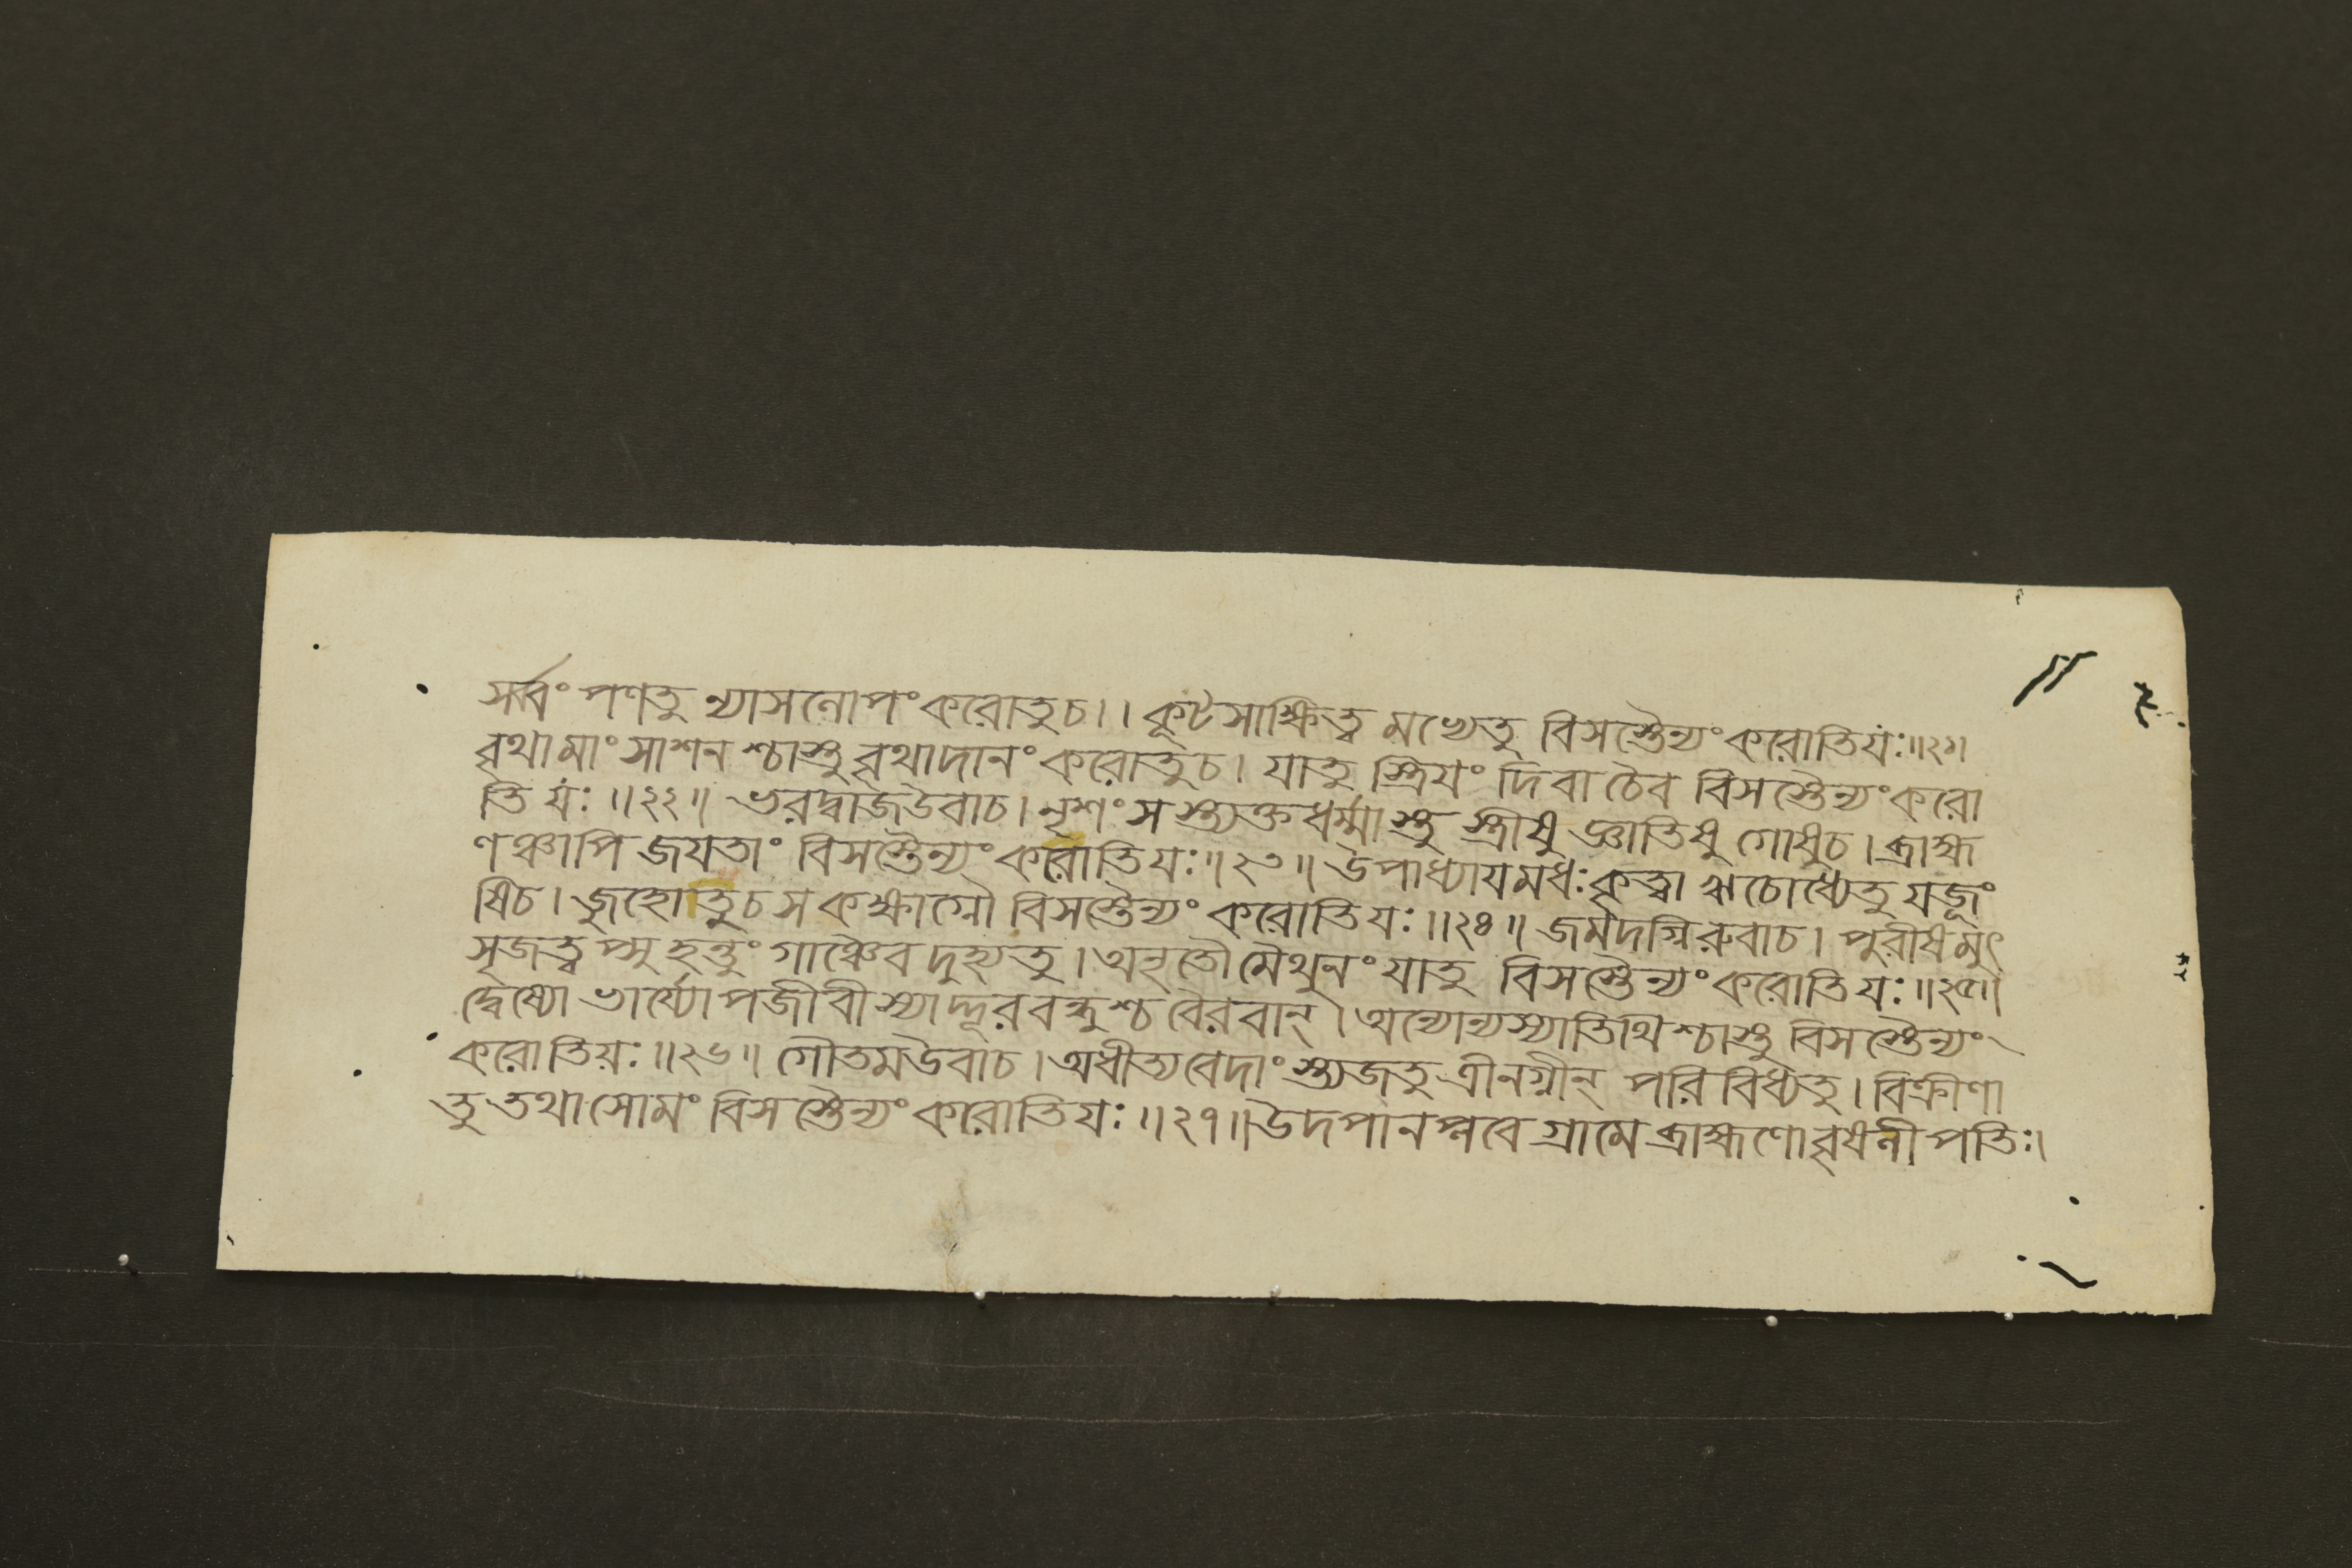 সর্ব্বং পণতু ন্যাসলোপং করোতু চ।। কূটসাক্ষিত্ব মখ্যেতু বিসস্তৈন্যং করোতিযঃ॥২১॥
বৃথামাংসাশনশ্চাস্তু বৃথাদানং করোতুচ। যাতু স্ত্রিযং দিবা চৈব বিসস্তৈন্যং করো
তি যঃ॥২২॥ ভরদ্বাজউবাচ। নৃশংসস্ত্যক্তধর্ম্মাস্তু স্ত্রীষু জ্ঞাতিষু গোষুচ। ব্রাহ্ম
ণঞ্চাপি জযতাং বিসস্তৈন্যং করোতিযঃ॥২৩॥ উপাধ্যাযমধঃকৃত্বা ঋচোধ্যেতু যজূং
ষিচ। জুহোতুচ স কক্ষাগ্নৌ বিসস্তৈন্যং করোতিযঃ॥২৪॥ জমদগ্নিরুবাচ। পুরীষমুৎ
সৃজত্বপ্সু হন্তুং গাঞ্চৈব দুহ্যতু। অনৃতৌ মৈথুনং যাতু বিসস্তৈন্যং করোতিযঃ॥২৫॥
দ্বেষ্যো ভার্য্যোপজীবী স্যাদ্দূরবন্ধুশ্চ বৈরবান্। অন্যোন্যস্যাতিথিশ্চাস্তু বিসস্তৈন্যং
করোতিযঃ॥২৬॥ গৌতমউবাচ। অধীত্যবেদাংস্ত্যজতু ত্রীনগ্নীন্ পরিবিধ্যতু। বিক্রীণা
তু তথা সোমং বিসস্তৈন্যং করোতিযঃ॥২৭॥ উদপানপ্লবে গ্রামে ব্রাহ্মণোবৃষলীপতিঃ।